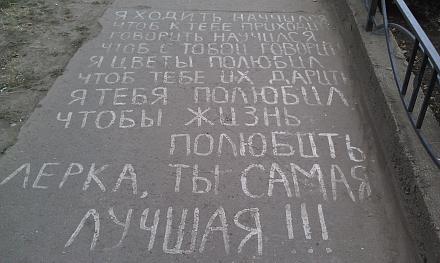 Я ХОДИТЬ НАУЧИЛСЯ
ЧТОБ К ТЕБЕ ПРИХОДИТЬ
ГОВОРИТЬ НАУЧИЛСЯ
ЧТОБ С ТОБОЙ ГОВОРИТЬ
Я ЦВЕТЫ ПОЛЮБИЛ
ЧТОБ ТЕБЕ ИХ ДАРИТЬ
Я ТЕБЯ ПОЛЮБИЛ
ЧТОБЫ ЖИЗНЬ
ПОЛЮБИТЬ
ЛЕРКА, ТЫ САМАЯ
ЛУЧШАЯ !!!